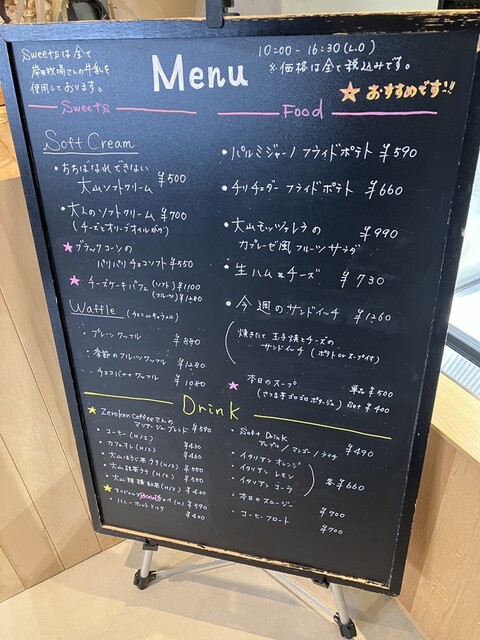 Sweetsは全て
岸田牧場さんの牛乳を
使用しております。
Menu
10:00 - 16:30 (L.O)
※価格は全て税込みです。
★ おすすめです!!
Sweets
Soft Cream
・おちちばなれできない
大山ソフトクリーム ¥500
・大人のソフトクリーム ¥700
(チーズとオリーブオイルがけ)
★ブラックコーンの
パリパリチョコソフト ¥550
★チーズケーキパフェ (ソフト) ¥1100
(フルーツ) ¥1280
Waffle
・プレーンワッフル ¥880
・季節のフルーツワッフル ¥1280
・チョコバナナワッフル ¥1080
Food
・パルミジャーノ フライドポテト ¥590
・チリチェダー フライドポテト ¥660
・大山モッツァレラの
カプレーゼ風 フルーツサラダ ¥990
・生ハム&チーズ ¥730
・今週のサンドイッチ ¥1260
焼きたて 玉子焼とチーズの
サンドイッチ (ポテト or スープ付)
★本日のスープ 単品 ¥500
(さつま芋ゴロゴロポタージュ) Set ¥400
Drink
★Zeroken Coffeeさんの
マリアージュ ブレンド ¥590
・コーヒー (H/I) ¥430
・カフェオレ (H/I) ¥480
・大山ほうじ茶ラテ (H/I) ¥550
・大山抹茶ラテ (H/I) ¥550
・大山 紅茶 (H/I) ¥430
(H) ¥590
¥480
・Soft Drink
アップル / マンゴー / ¥490
・イタリアン オレンジ
・イタリアン レモン
・イタリアン コーラ
各 ¥660
・本日のスムージー ¥700
・コーヒーフロート ¥700